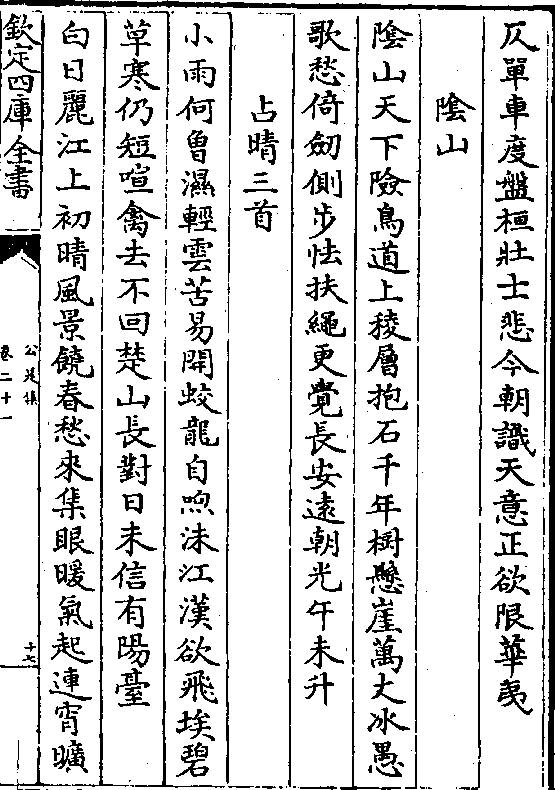 仄單車度盤桓壯士悲今朝識天意正欲限華夷
陰山
陰山天下險鳥道上稜層抱石千年樹懸崖萬丈冰愚
歌愁倚劒側步怯扶繩更覺長安遠朝光午未升
占晴三首
小雨何曾濕輕雲苦易開蛟龍自呴沫江漢欲飛埃碧
草寒仍短喧禽去不回楚山長對日未信有陽臺
白日麗江上初晴風景饒春愁來集眼暖氣起連宵曠
欽定四庫全書
公是集
卷二十一
十七